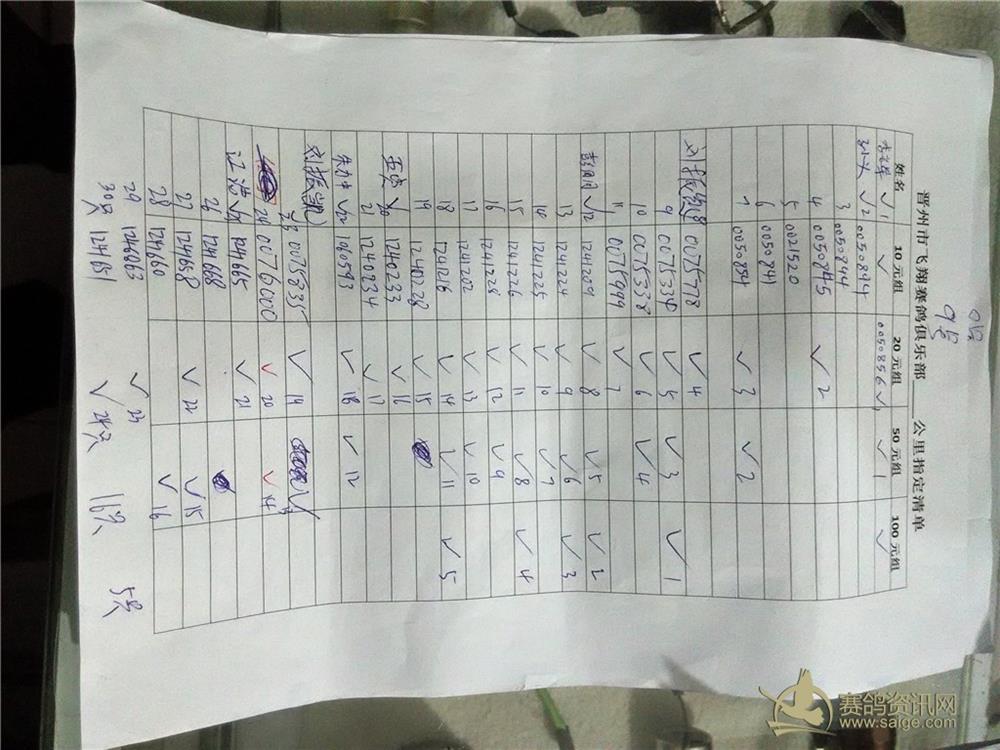 9号
晋州市飞翔赛鸽俱乐部____公里指定清单
姓名 10元组 20元组 50元组 100元组
√1 √ 0050856√1 √1 √
√2 0050894
3 0050844
4 0050845 √2
5 0021520
6 0050841
7 0050884 √3 √2
刘振 8 0075778 √4
9 0075334 √5 √3 √1
10 0075338 √6 √4
11 0075999 √7
√12 1241209 √8 √5 √2
13 1241224 √9 √6 √3
14 1241225 √10 √7
15 1241226 √11 √8 √4
16 1241228 √12 √9
17 1241202 √13 √10
18 1241216 √14 √11 √5
19 1240228 √15
√20 1240233 √16
21 1240234 √17
√22 1060593 √18 √12
刘振凯 23 0075335 √19
24 0076000 √20 √14
江浩 124665 √21
26 124668
27 124658 √22 √15
28 124660 √16
29 124663 √23
30只 124651 √24只 16只 5只
赛鸽资讯网
www.saige.com